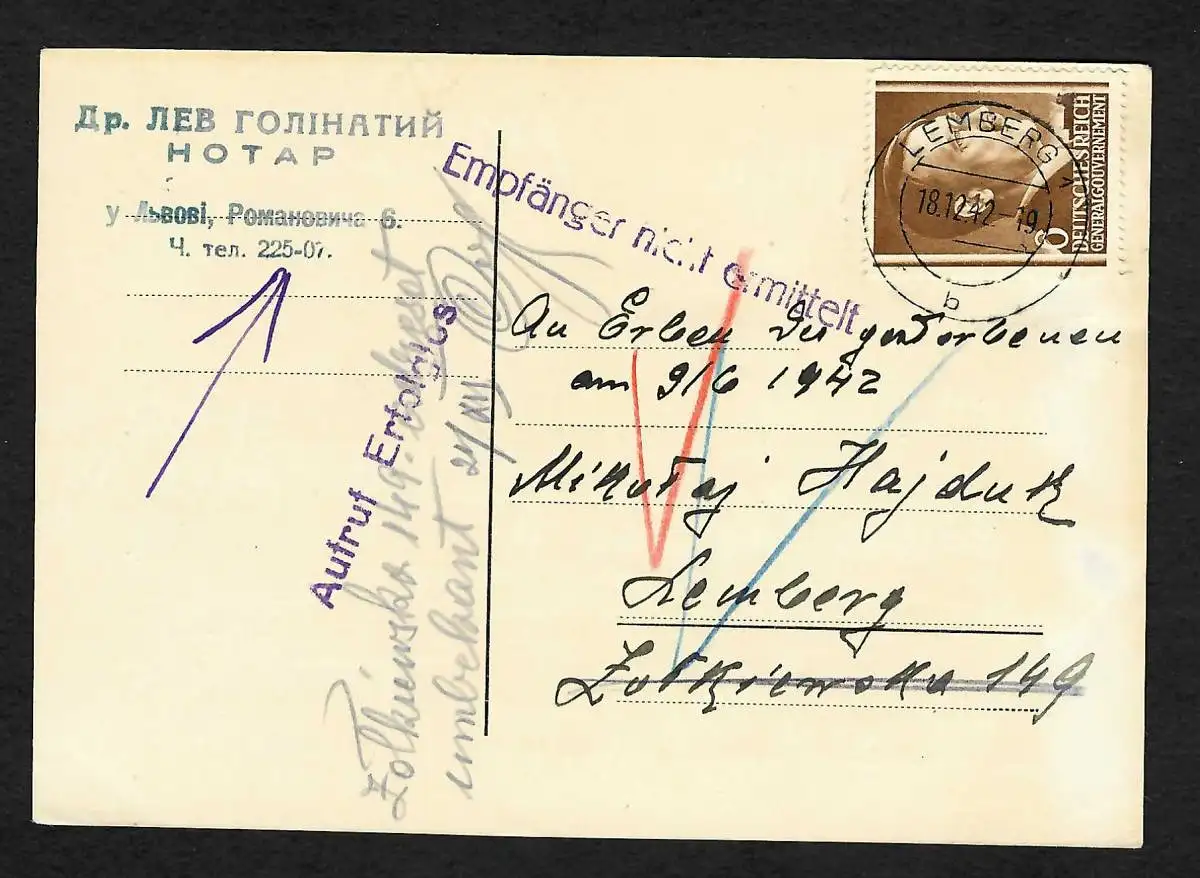 Др. ЛЕВ ГОЛІНАТИЙ
НОТАР
у Львові, Романовича 6.
Ч. тел. 225-07.
Empfänger nicht ermittelt
DEUTSCHES REICH
GENERALGOUVERNEMENT
8
LEMBERG
18.12.42-19
b
An Erben des gestorbenen
am 9/6 1942
Mikołaj Hajduk
Lemberg
Żołkiewska 149
Aufruf Erfolglos
Żołkiewska 149
unbekannt 21/XII